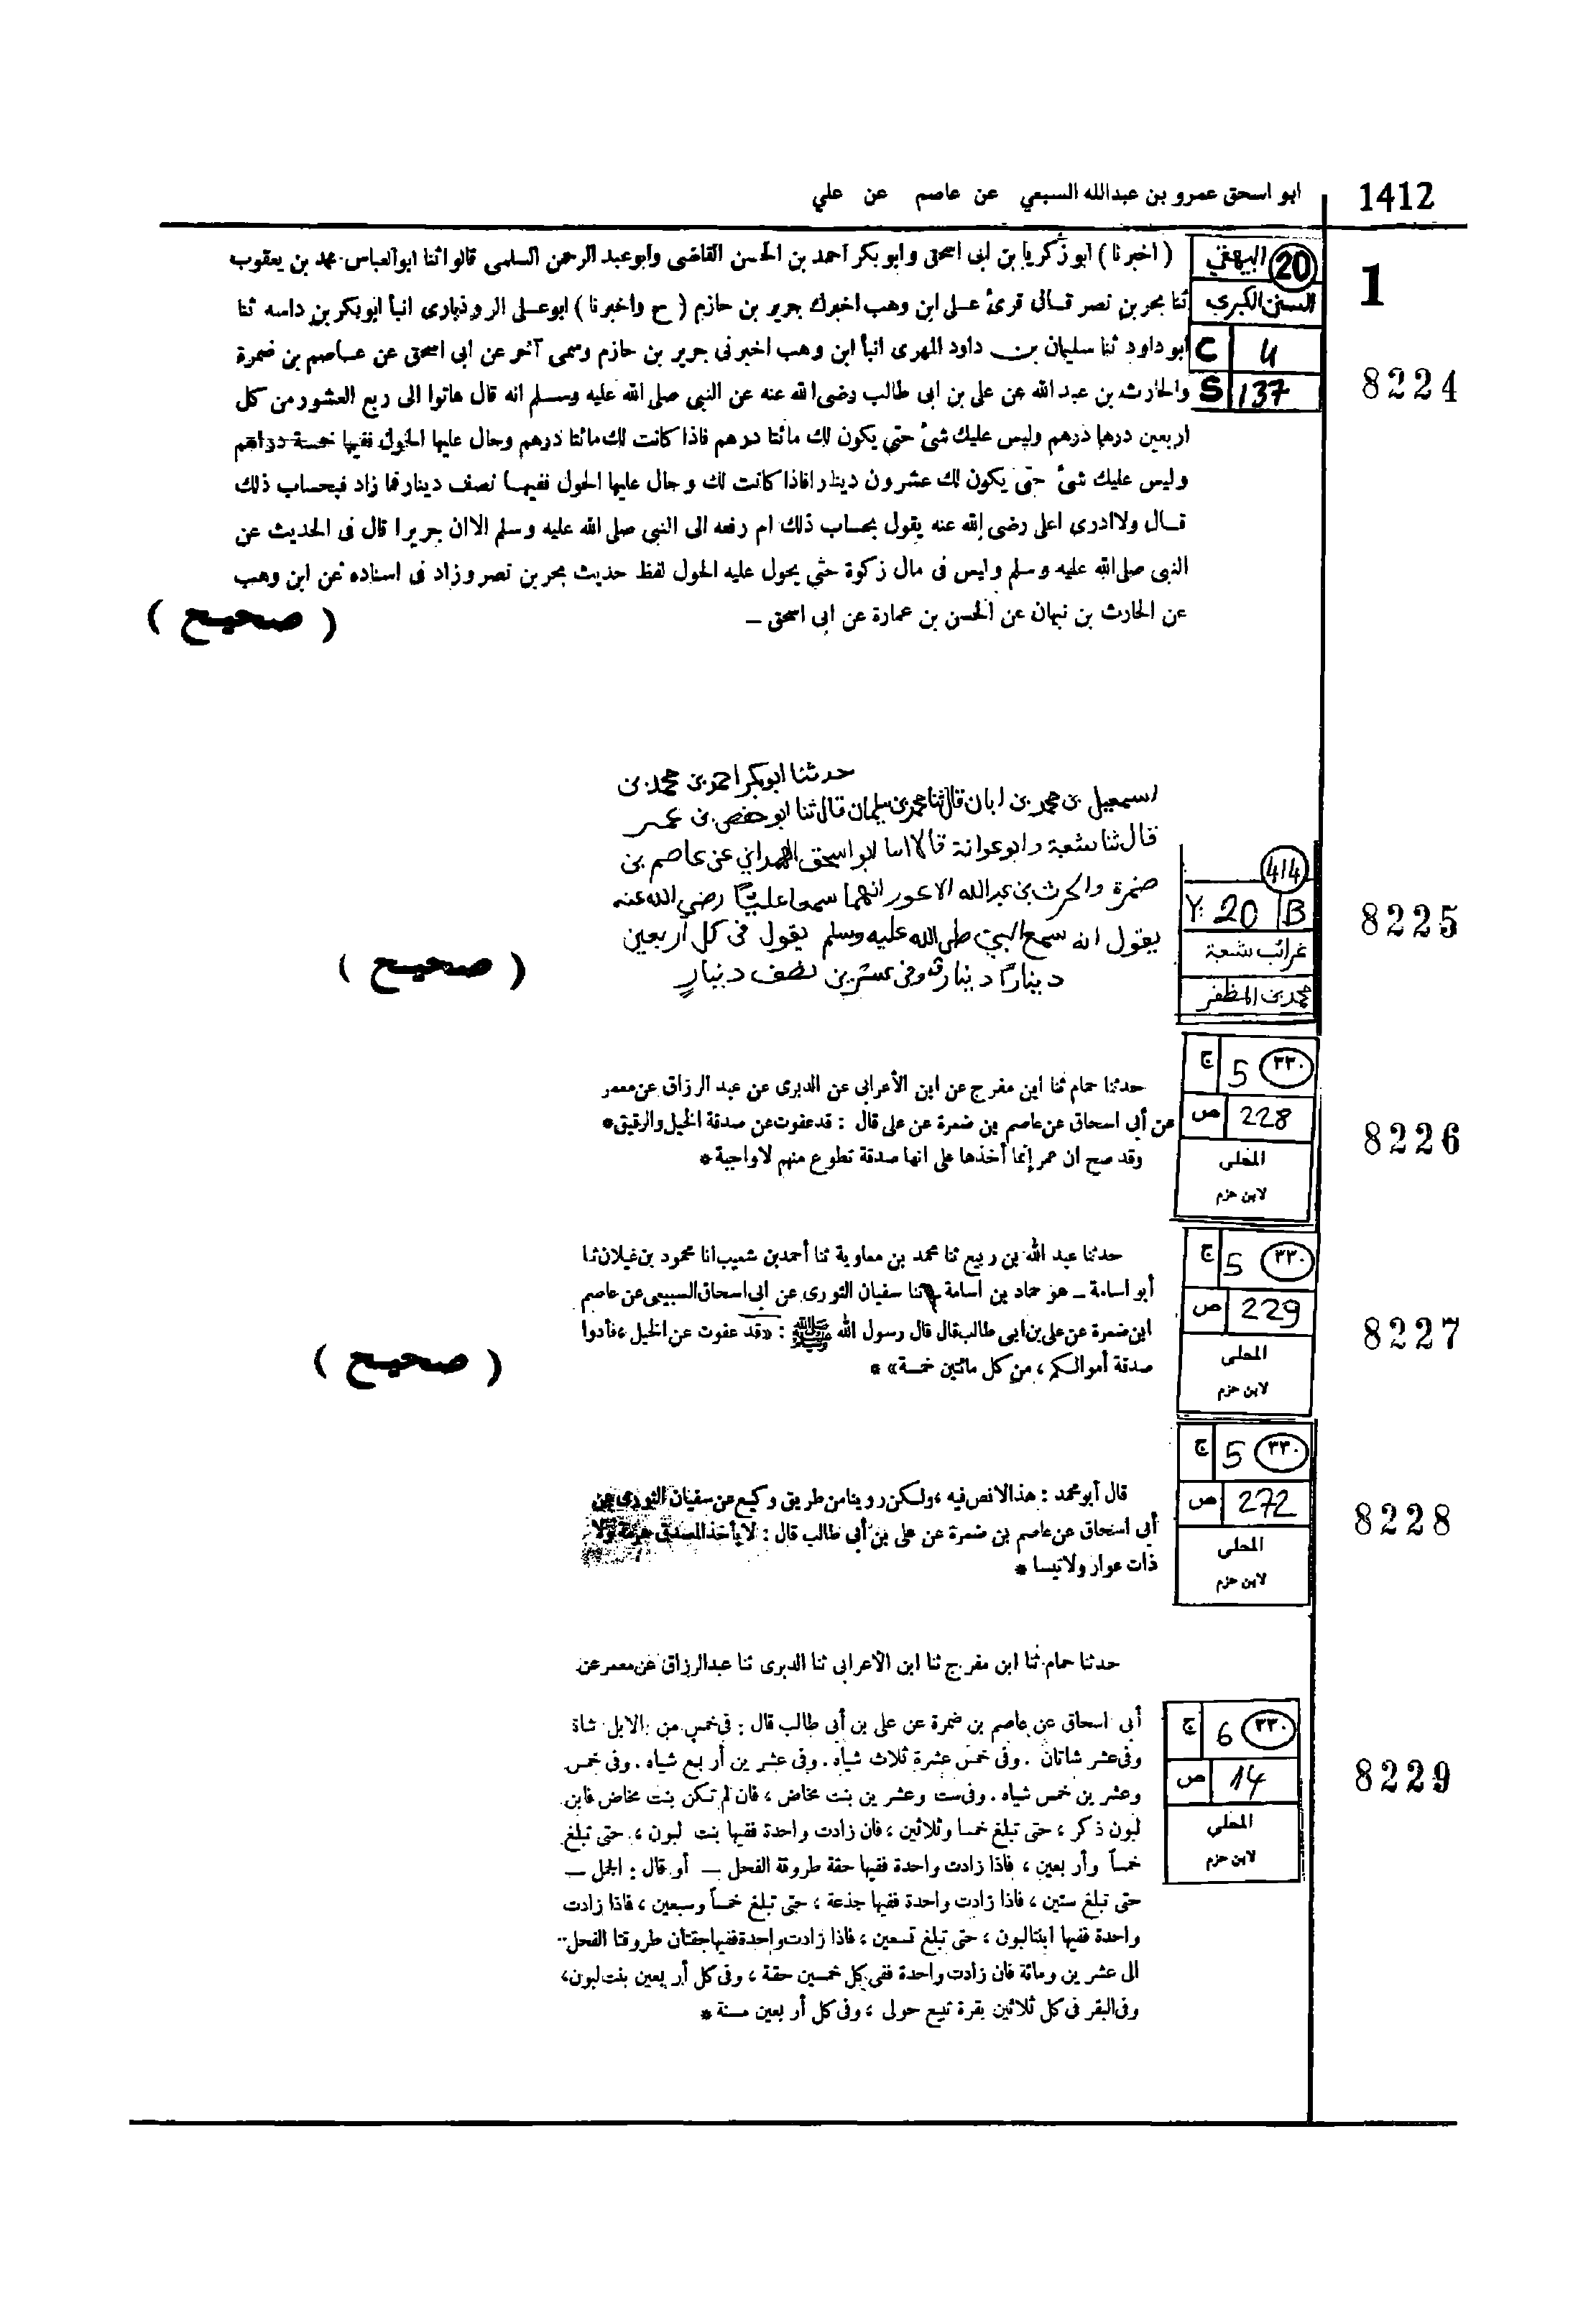 1412
ابو اسحق عمرو بن عبدالله السبعي عن عاصم عن علي
1
8224
20 البيهقي
السنن الكبرى
C 4
S 137
( اخبرنا ) ابو زكريا بن ابى اسحق وابو بكر احمد بن الحسن القاضى وابو عبد الرحمن السلمى قالوا ثنا ابو العباس محمد بن يعقوب
ثنا بحر بن نصر قال قرئ على ابن وهب اخبرك جرير بن حازم ( ح واخبرنا ) ابو على الروذبارى انبأ ابو بكر بن داسه ثنا
أبو داود ثنا سليمان بن داود المهرى انبأ ابن وهب اخبرنى جرير بن حازم وسمى آخر عن ابى اسحق عن عاصم بن ضمرة
والحارث بن عبد الله عن على بن ابى طالب رضى الله عنه عن النبى صلى الله عليه وسلم انه قال هاتوا الى ربع العشور من كل
اربعين درهما درهم وليس عليك شئ حتى يكون لك مائتا درهم فاذا كانت لك مائتا درهم وحال عليها الحول ففيها خمسة دراهم
وليس عليك شئ حتى يكون لك عشرون دينارا فاذا كانت لك وحال عليها الحول ففيها نصف دينار فما زاد فبحساب ذلك
قال ولا ادرى اعلى رضى الله عنه يقول بحساب ذلك ام رفعه الى النبى صلى الله عليه وسلم الا ان جريرا قال فى الحديث عن
النبى صلى الله عليه وسلم وليس فى مال زكوة حتى يحول عليه الحول لفظ حديث بحر بن نصر وزاد فى اسناده عن ابن وهب
عن الحارث بن نبهان عن الحسن بن عمارة عن ابى اسحق –
( صحيح )
8225
414
Y: 20 B
غرائب شعبة
محمد بن المظفر
حدثنا ابو بكر احمد بن محمد بن
اسمعيل بن محمد بن ابان قال ثنا محمد بن سليمان قال ثنا ابو حفص بن عمر
قال ثنا شعبة وابو عوانة قالا انبا ابو اسحق الهمداني عن عاصم بن
ضمرة والحرث بن عبدالله الاعور انهما سمعا عليًا رضي الله عنه
يقول انه سمع النبي صلى الله عليه وسلم يقول في كل اربعين
دينارًا دينار وفي عشرين نصف دينارٍ
( صحيح )
8226
٣٣٠ 5 ج
228 ص
المحلى
لابن حزم
حدثنا حمام ثنا ابن مفرج عن ابن الأعرابى عن الدبرى عن عبد الرزاق عن معمر
عن أبى اسحاق عن عاصم بن ضمرة عن على قال : قد عفوت عن صدقة الخيل والرقيق *
وقد صح ان عمر إنما أخذها على انها صدقة تطوع منهم لا واجبة *
8227
٣٣٠ 5 ج
229 ص
المحلى
لابن حزم
حدثنا عبد الله بن ربيع ثنا محمد بن معاوية ثنا أحمد بن شعيب انا محمود بن غيلان ثنا
أبو اسامة – هو حماد بن اسامة – ثنا سفيان الثورى عن ابى اسحاق السبيعى عن عاصم
ابن ضمرة عن على بن ابى طالب قال قال رسول الله ﷺ : «قد عفوت عن الخيل ، فأدوا
صدقة أموالكم ، من كل مائتين خمسة» *
( صحيح )
8228
٣٣٠ 5 ج
272 ص
المحلى
لابن حزم
قال أبو محمد : هذا لا نص فيه ، ولكن روينا من طريق وكيع عن سفيان الثورى عن
أبى اسحاق عن عاصم بن ضمرة عن على بن أبى طالب قال : لا يأخذ المصدق هرمة ولا
ذات عوار ولا تيسا *
8229
٣٣٠ 6 ج
14 ص
المحلى
لابن حزم
حدثنا حمام ثنا ابن مفرج ثنا ابن الأعرابى ثنا الدبرى ثنا عبد الرزاق عن معمر عن
أبى اسحاق عن عاصم بن ضمرة عن على بن أبى طالب قال : فى خمس من الابل شاة
وفى عشر شاتان . وفى خمس عشرة ثلاث شياه . وفى عشرين أربع شياه . وفى خمس
وعشرين خمس شياه . وفى ست وعشرين بنت مخاض ، فان لم تكن بنت مخاض فابن
لبون ذكر ، حتى تبلغ خمسا وثلاثين ، فان زادت واحدة ففيها بنت لبون ، حتى تبلغ
خمساً وأربعين ، فاذا زادت واحدة ففيها حقة طروقة الفحل – أو قال : الجمل –
حتى تبلغ ستين ، فاذا زادت واحدة ففيها جذعة ، حتى تبلغ خمساً وسبعين ، فاذا زادت
واحدة ففيها ابنتا لبون ، حتى تبلغ تسعين ، فاذا زادت واحدة ففيها حقتان طروقتا الفحل
الى عشرين ومائة فان زادت واحدة ففى كل خمسين حقة ، وفى كل أربعين بنت لبون ،
وفى البقر فى كل ثلاثين بقرة تبيع حولى ، وفى كل أربعين مسنة *